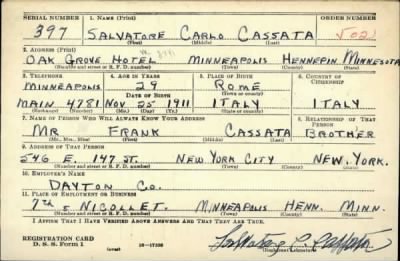 SERIAL NUMBER 1. NAME (Print) ORDER NUMBER
397 SALVATORE CARLO CASSATA
(First) (Middle) (Last)
2. ADDRESS (Print)
OAK GROVE HOTEL MINNEAPOLIS HENNEPIN MINNESOTA
(Number and street or R. F. D. number) (Town) (County) (State)
3. TELEPHONE 4. AGE IN YEARS 5. PLACE OF BIRTH 6. COUNTRY OF CITIZENSHIP
MINNEAPOLIS 29 ROME
DATE OF BIRTH (Town or county)
MAIN 4781 NOV 25 1911 ITALY ITALY
(Exchange) (No.) (Mo.) (Day) (Yr.) (State or country)
7. NAME OF PERSON WHO WILL ALWAYS KNOW YOUR ADDRESS 8. RELATIONSHIP OF THAT PERSON
MR FRANK CASSATA BROTHER
(Mr., Mrs., Miss) (First) (Middle) (Last)
9. ADDRESS OF THAT PERSON
546 E. 147 ST. NEW YORK CITY NEW YORK.
(Number and street or R. F. D. number) (Town) (County) (State)
10. EMPLOYER'S NAME
DAYTON CO.
11. PLACE OF EMPLOYMENT OR BUSINESS
7TH & NICOLLET. MINNEAPOLIS HENN. MINN.
(Number and street or R. F. D. number) (Town) (County) (State)
I AFFIRM THAT I HAVE VERIFIED ABOVE ANSWERS AND THAT THEY ARE TRUE.
REGISTRATION CARD
D. S. S. Form 1 (over) 16—17105 Salvatore C. Cassata
(Registrant's signature)